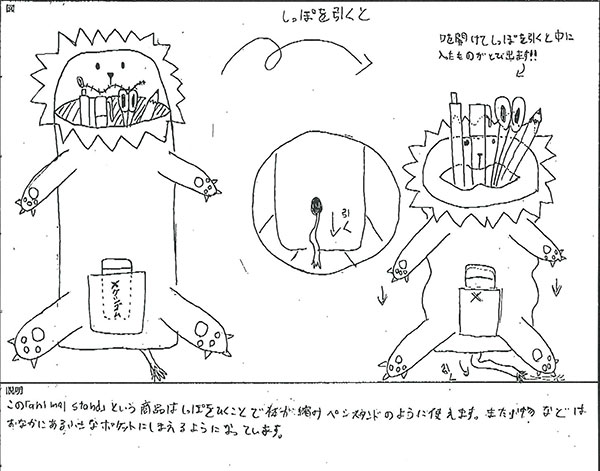 図
しっぽを引くと
口を開けてしっぽを引くと中に
入たものがとび出ます!!
引く
メグシゴム
引く
説明
この「animal stand」という商品はしっぽをひくことで布が縮みペンスタンドのように使えます。また小物などは
おなかにある小さなポケットにしまえるようになっています。